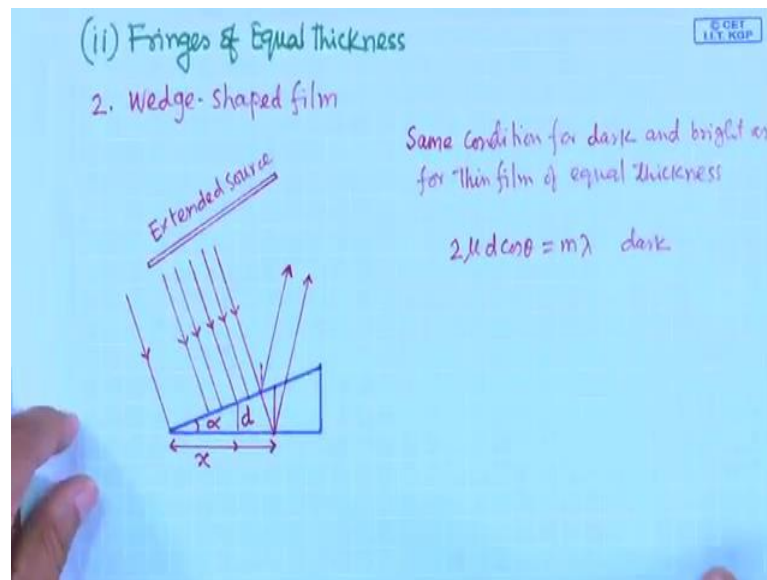 (ii) Fringes of Equal Thickness
© CET
I.I.T. KGP
2. Wedge-shaped film
Same condition for dark and bright as
for thin film of equal thickness
2μd cosθ = mλ dark
Extended Source
α
d
x